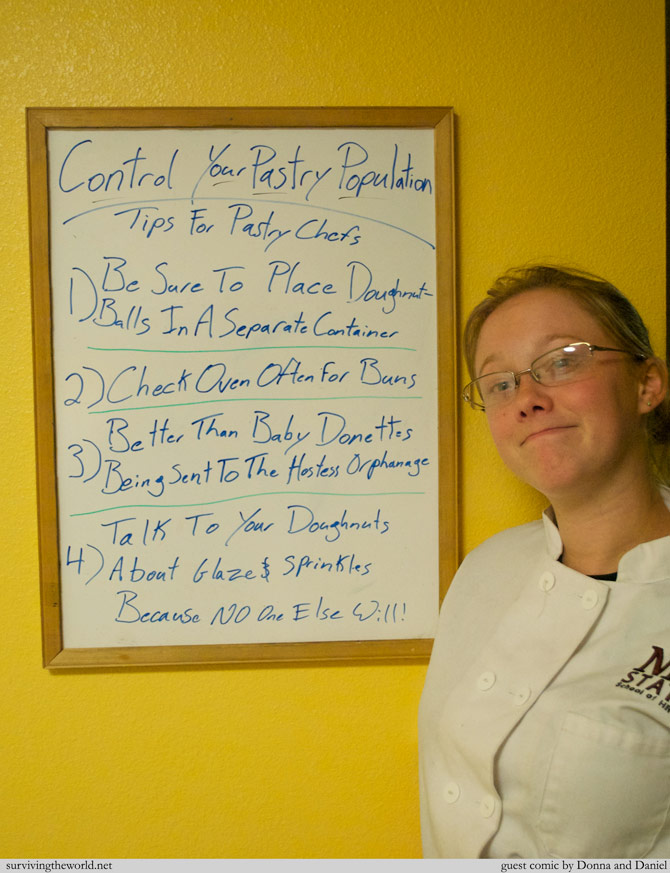 Control Your Pastry Population
Tips For Pastry Chefs
1) Be Sure To Place Doughnut-
Balls In A Separate Container
2) Check Oven Often For Buns
3) Better Than Baby Donettes
Being Sent To The Hostess Orphanage
Talk To Your Doughnuts
4) About Glaze & Sprinkles
Because NO One Else Will!
STAT
School of
survivingtheworld.net
guest comic by Donna and Daniel